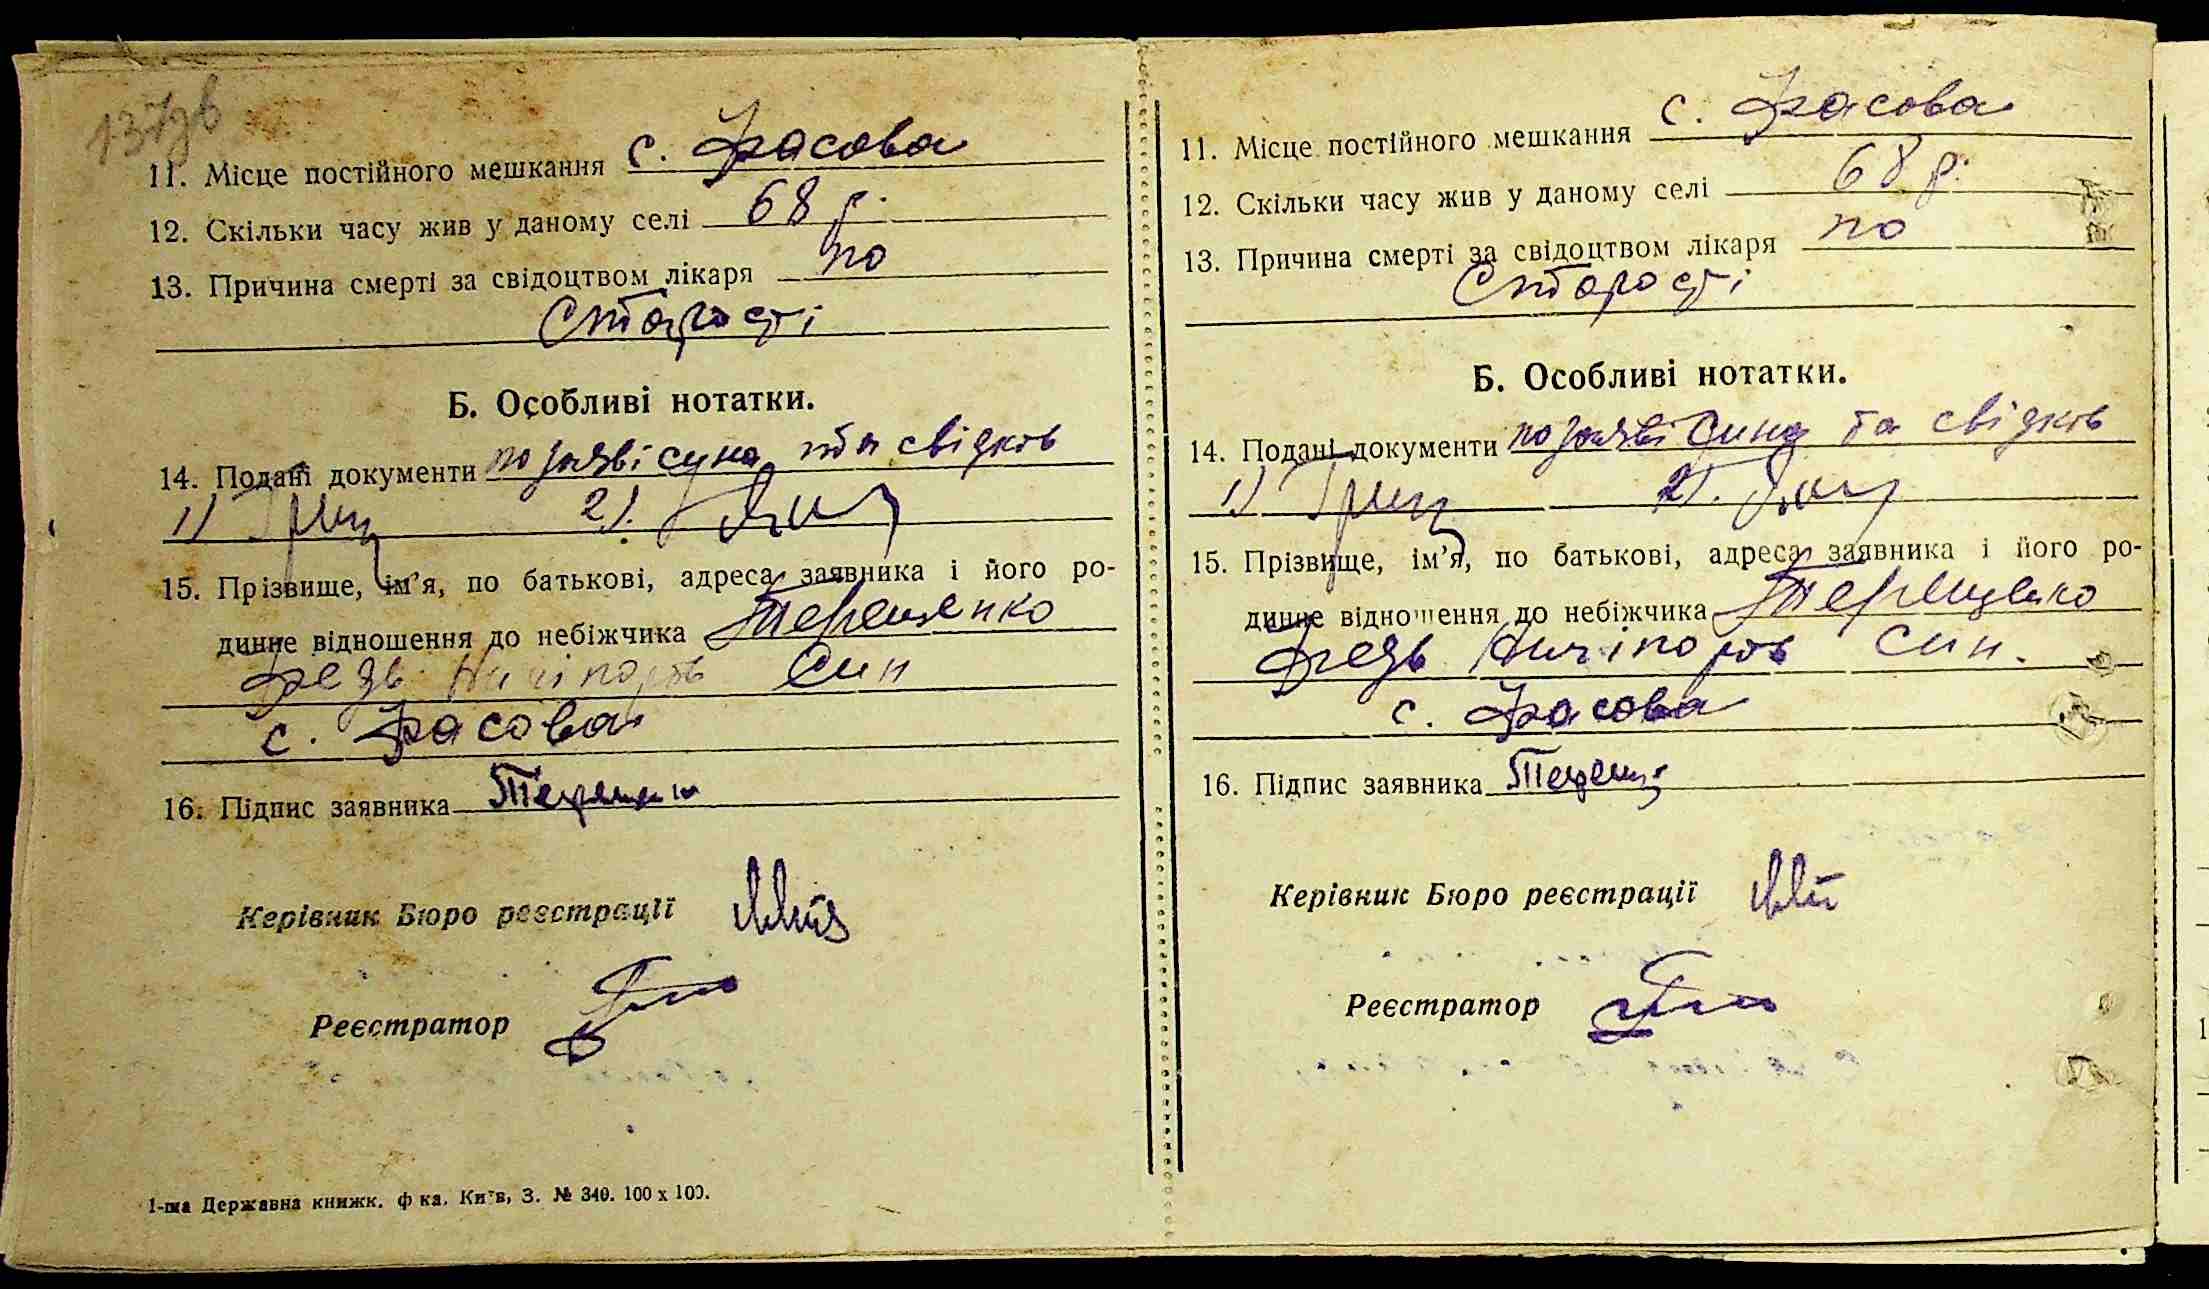 137зв
11. Місце постійного мешкання с. Красова
12. Скільки часу жив у даному селі 68 р.
13. Причина смерті за свідоцтвом лікаря по
старості
Б. Особливі нотатки.
14. Подані документи по заяві сина та свідків
1) Гриц 2).
15. Прізвище, ім’я, по батькові, адреса заявника і його ро-
динне відношення до небіжчика Терещенко
Федь Ничіпорів син
с. Красова
16. Підпис заявника
Керівник Бюро реєстрації
Реєстратор
1-ша Державна книжк. ф ка. Київ, З. № 340. 100 х 100.
11. Місце постійного мешкання с. Красова
12. Скільки часу жив у даному селі 68 р.
13. Причина смерті за свідоцтвом лікаря по
старості
Б. Особливі нотатки.
14. Подані документи по заяві сина та свідків
1) Гриц 2).
15. Прізвище, ім’я, по батькові, адреса заявника і його ро-
динне відношення до небіжчика Терещенко
Федь Ничіпорів син.
с. Красова
16. Підпис заявника Терещ
Керівник Бюро реєстрації
Реєстратор